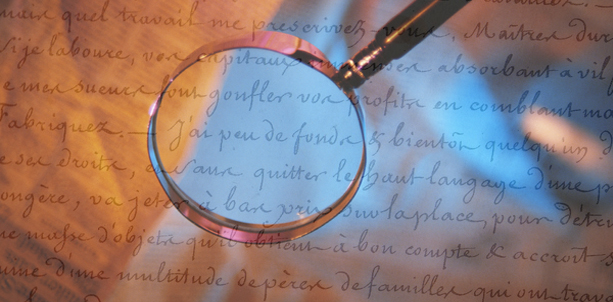 mark quel travail me prescrivez-vous, Maîtres dur
Si je laboure, vos capitaux absorbant à vil
e mes sueurs font gonfler vos profits en comblant
Fabriquez. — J'ai peu de fonds & bientôt quelqu'un
ses droits, sans quitter le haut langage d'une
songère, va jeter à bas prix sur la place, pour
masse d'objets qu'il obtient à bon compte & accroît
d'une multitude de pères de familles qui ont